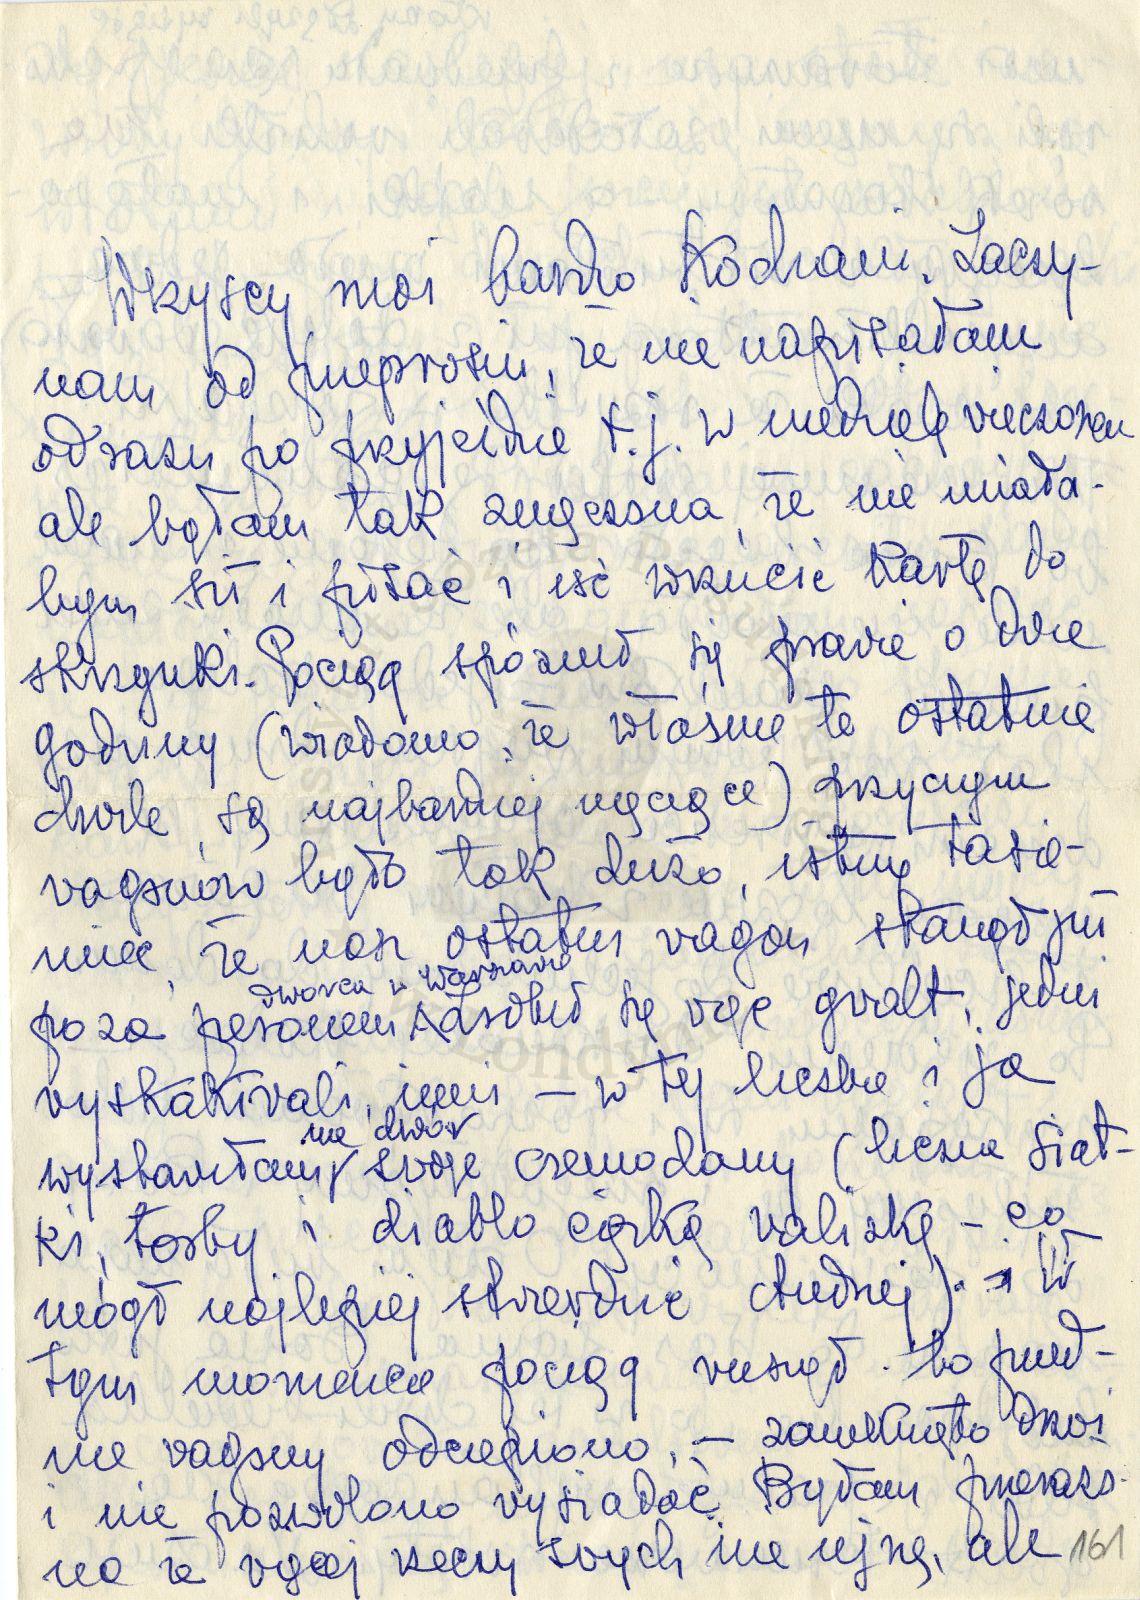 Wszyscy moi bardzo Kochani. Zaczy-
nam od przeprosin, że nie napisałam
odrazu po przyjeździe t.j. w niedzielę wieczorem
ale byłam tak zmęczona, że nie miała-
bym sił i pisać i iść wrzucić kartę do
skrzynki. Pociąg spóźnił się prawie o dwie
godziny (wiadomo, że właśnie te ostatnie
chwile są najbardziej męczące) przyczym
wagonów było tak dużo, istny tasie-
miec, że nasz ostatni wagon stanął już
poza peronem dworca w Warszawie. Zrobił się więc gwałt, jedni
wyskakiwali, inni – w tej liczbie i ja
wystawiłam na dwór swoje czemodany (liczne siat-
ki, torby i diablo ciężką walizkę – co
mógł najlepiej stwierdzić Andrzej). – W
tym momencie pociąg ruszył. bo przed-
nie wagony odczepiono, – zamknięto drzwi
i nie pozwolono wysiadać. Byłam przerażo-
na że więcej rzeczy swych nie ujrzę, ale
161
Londyn